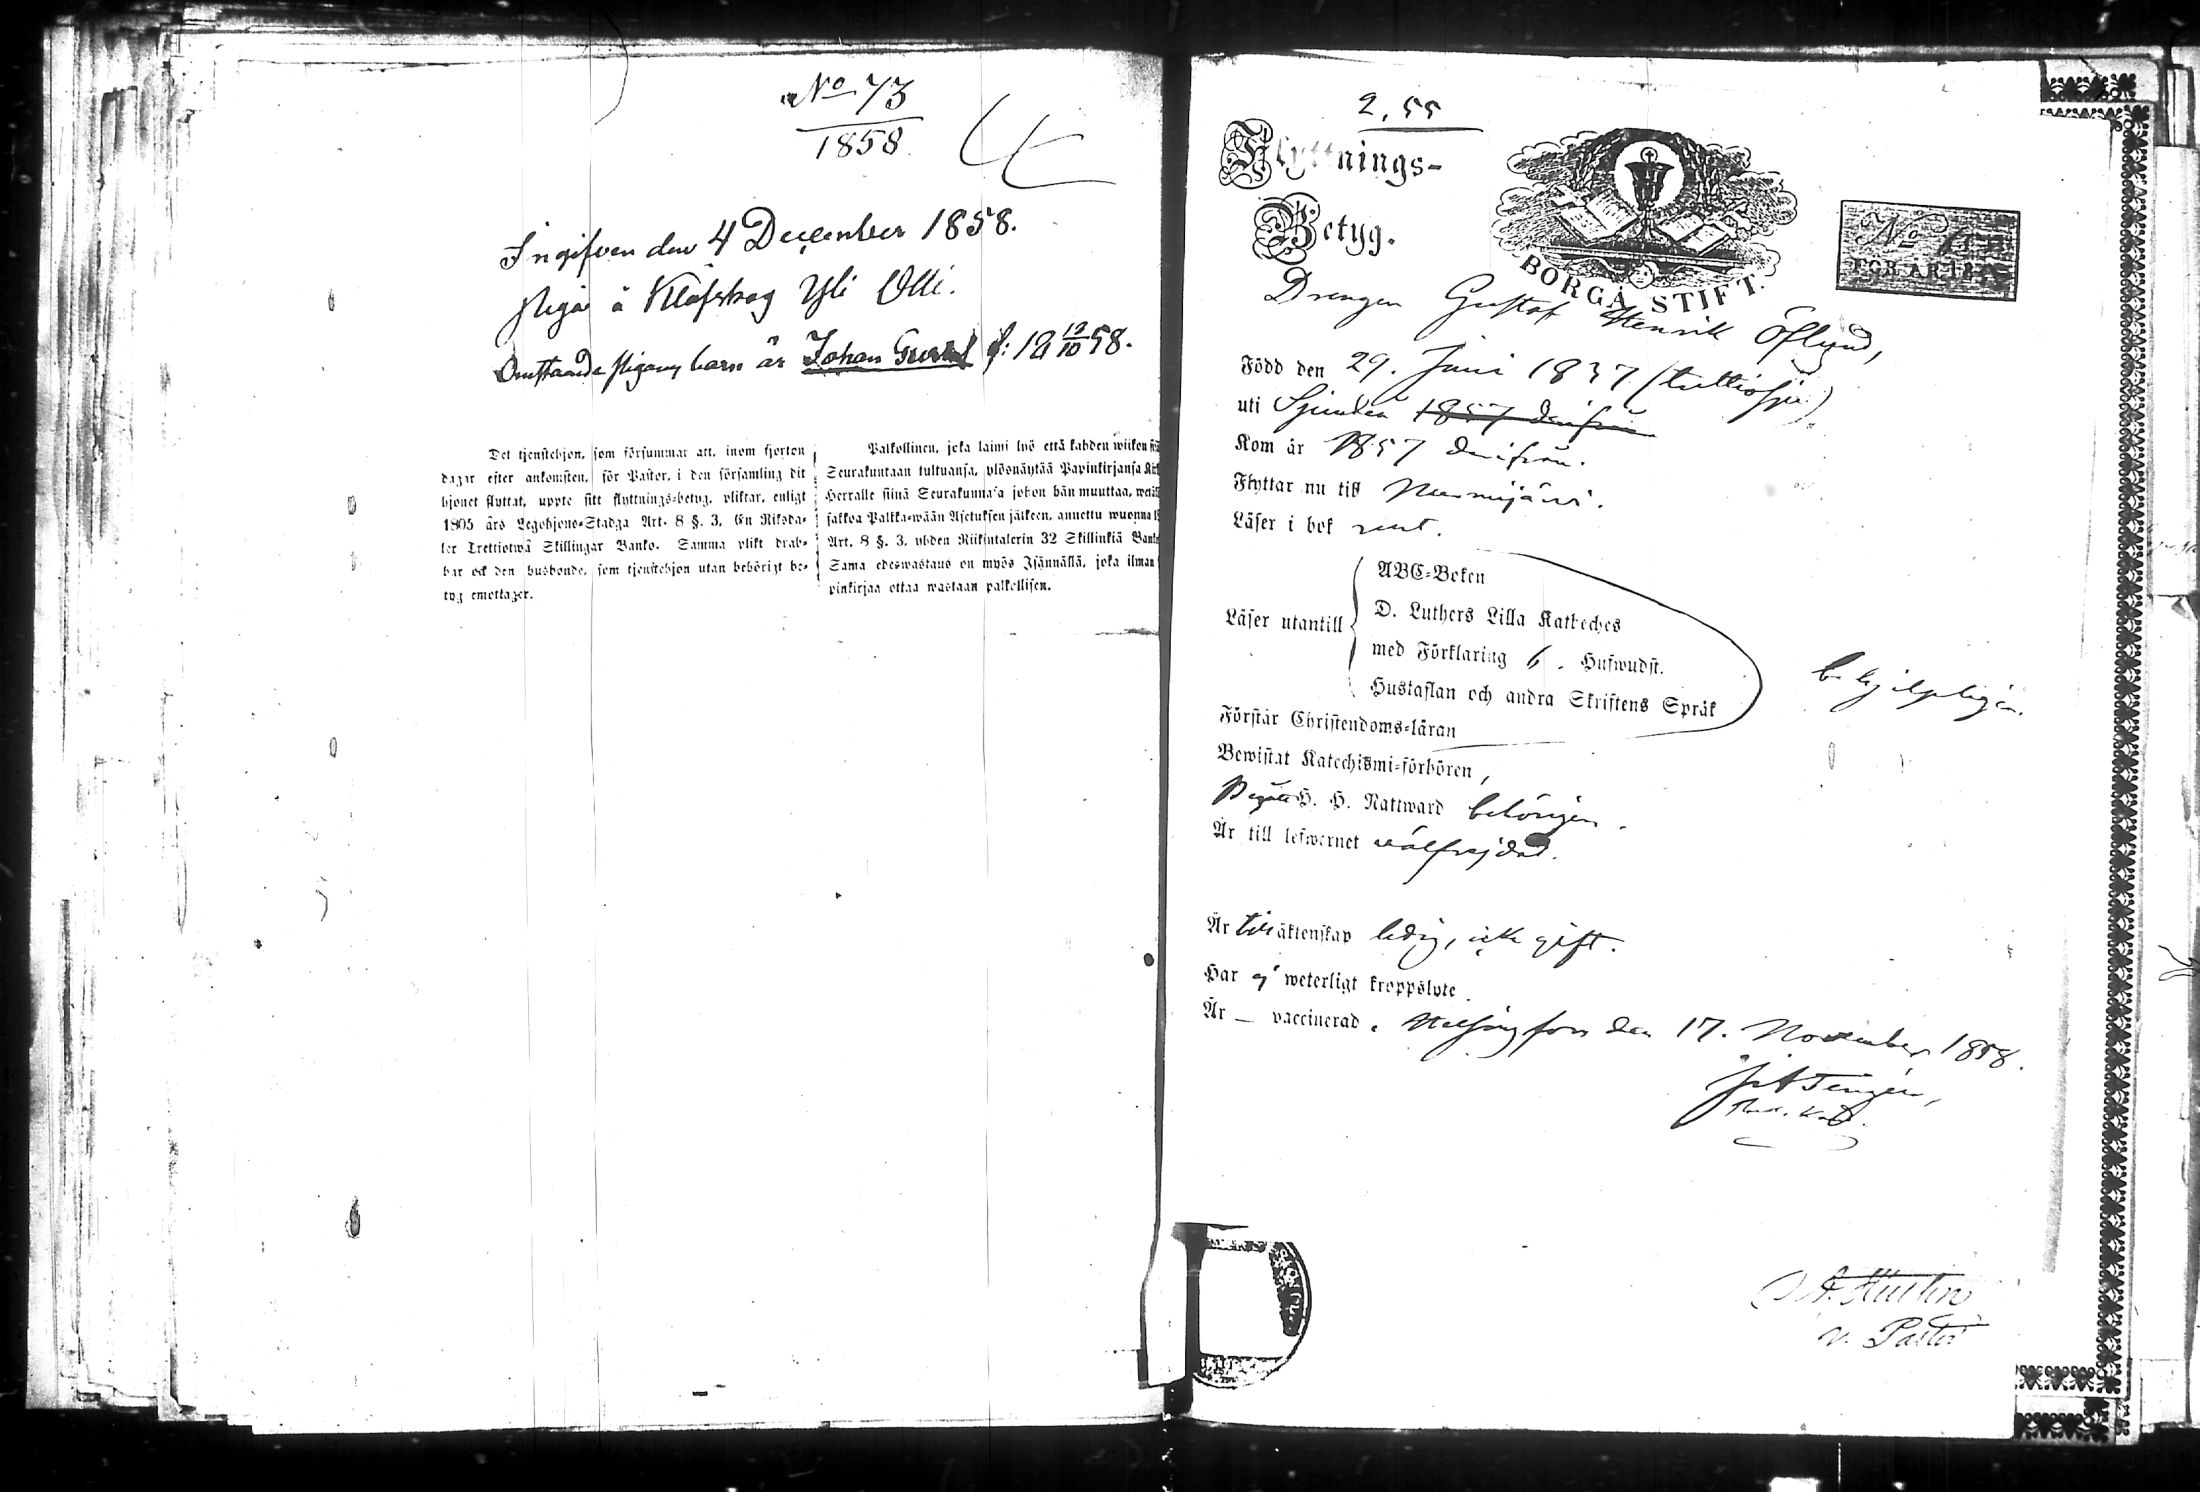 No 73
1858
Ingifven den 4 December 1858.
Pigan å Klöfskog Yli Olli.
Omstående pigans barn är Johan Gustaf f: 12/10 58.
Det tjenstehjon, som försummar att, inom fjorton
dagar efter ankomsten, för Pastor, i den församling dit
hjonet flyttat, uppte sitt flyttnings-betyg, pliktar, enligt
1805 års Legohjons-Stadga Art. 8 §. 3, En Riksda-
ler Trettiotwå Skillingar Banko. Samma plikt drab-
bar ock den husbonde, som tjenstehjon utan behörigt be-
tyg emottager.
Palkollinen, joka laimi lyö että kahden wiikon
Seurakuntaan tultuansa, ylösnäytää Papinkirjansa
Herralle siinä Seurakunnasa johon hän muuttaa,
sakkoa Palkka-wään Asetuksen jälkeen, annettu wuonna
Art. 8 §. 3, yhden Riikintalerin 32 Skillinkiä
Sama edeswastaus on myös Isännällä, joka ilman
pinkirjaa ottaa wastaan palkollisen.
2,55
Flyttnings-
Betyg.
BORGÅ STIFT.
No
FÖR ÅR 18
Drengen Gustaf Henrik Öflund,
Född den 29. Juni 1837 (trettiosju)
uti Sjundeå 1857 derifrån
Kom år 1857 derifrån.
Flyttar nu till Nurmijärvi.
Läser i bok rent.
Läser utantill
ABC-Boken
D. Luthers Lilla Katheches
med Förklaring 6. Hufwudst.
Hustaflan och andra Skriftens Språk
behjelpligen.
Förstår Christendoms-läran
Bewistat Katechismi-förhören,
Begått H. H. Nattward behörigen.
Är till lefwernet välfrejdad.
Är till äktenskap ledig, icke gift.
Har ej weterligt kroppslyte
Är — vaccinerad. Helsingfors den 17. November 1858.
v. Pastor